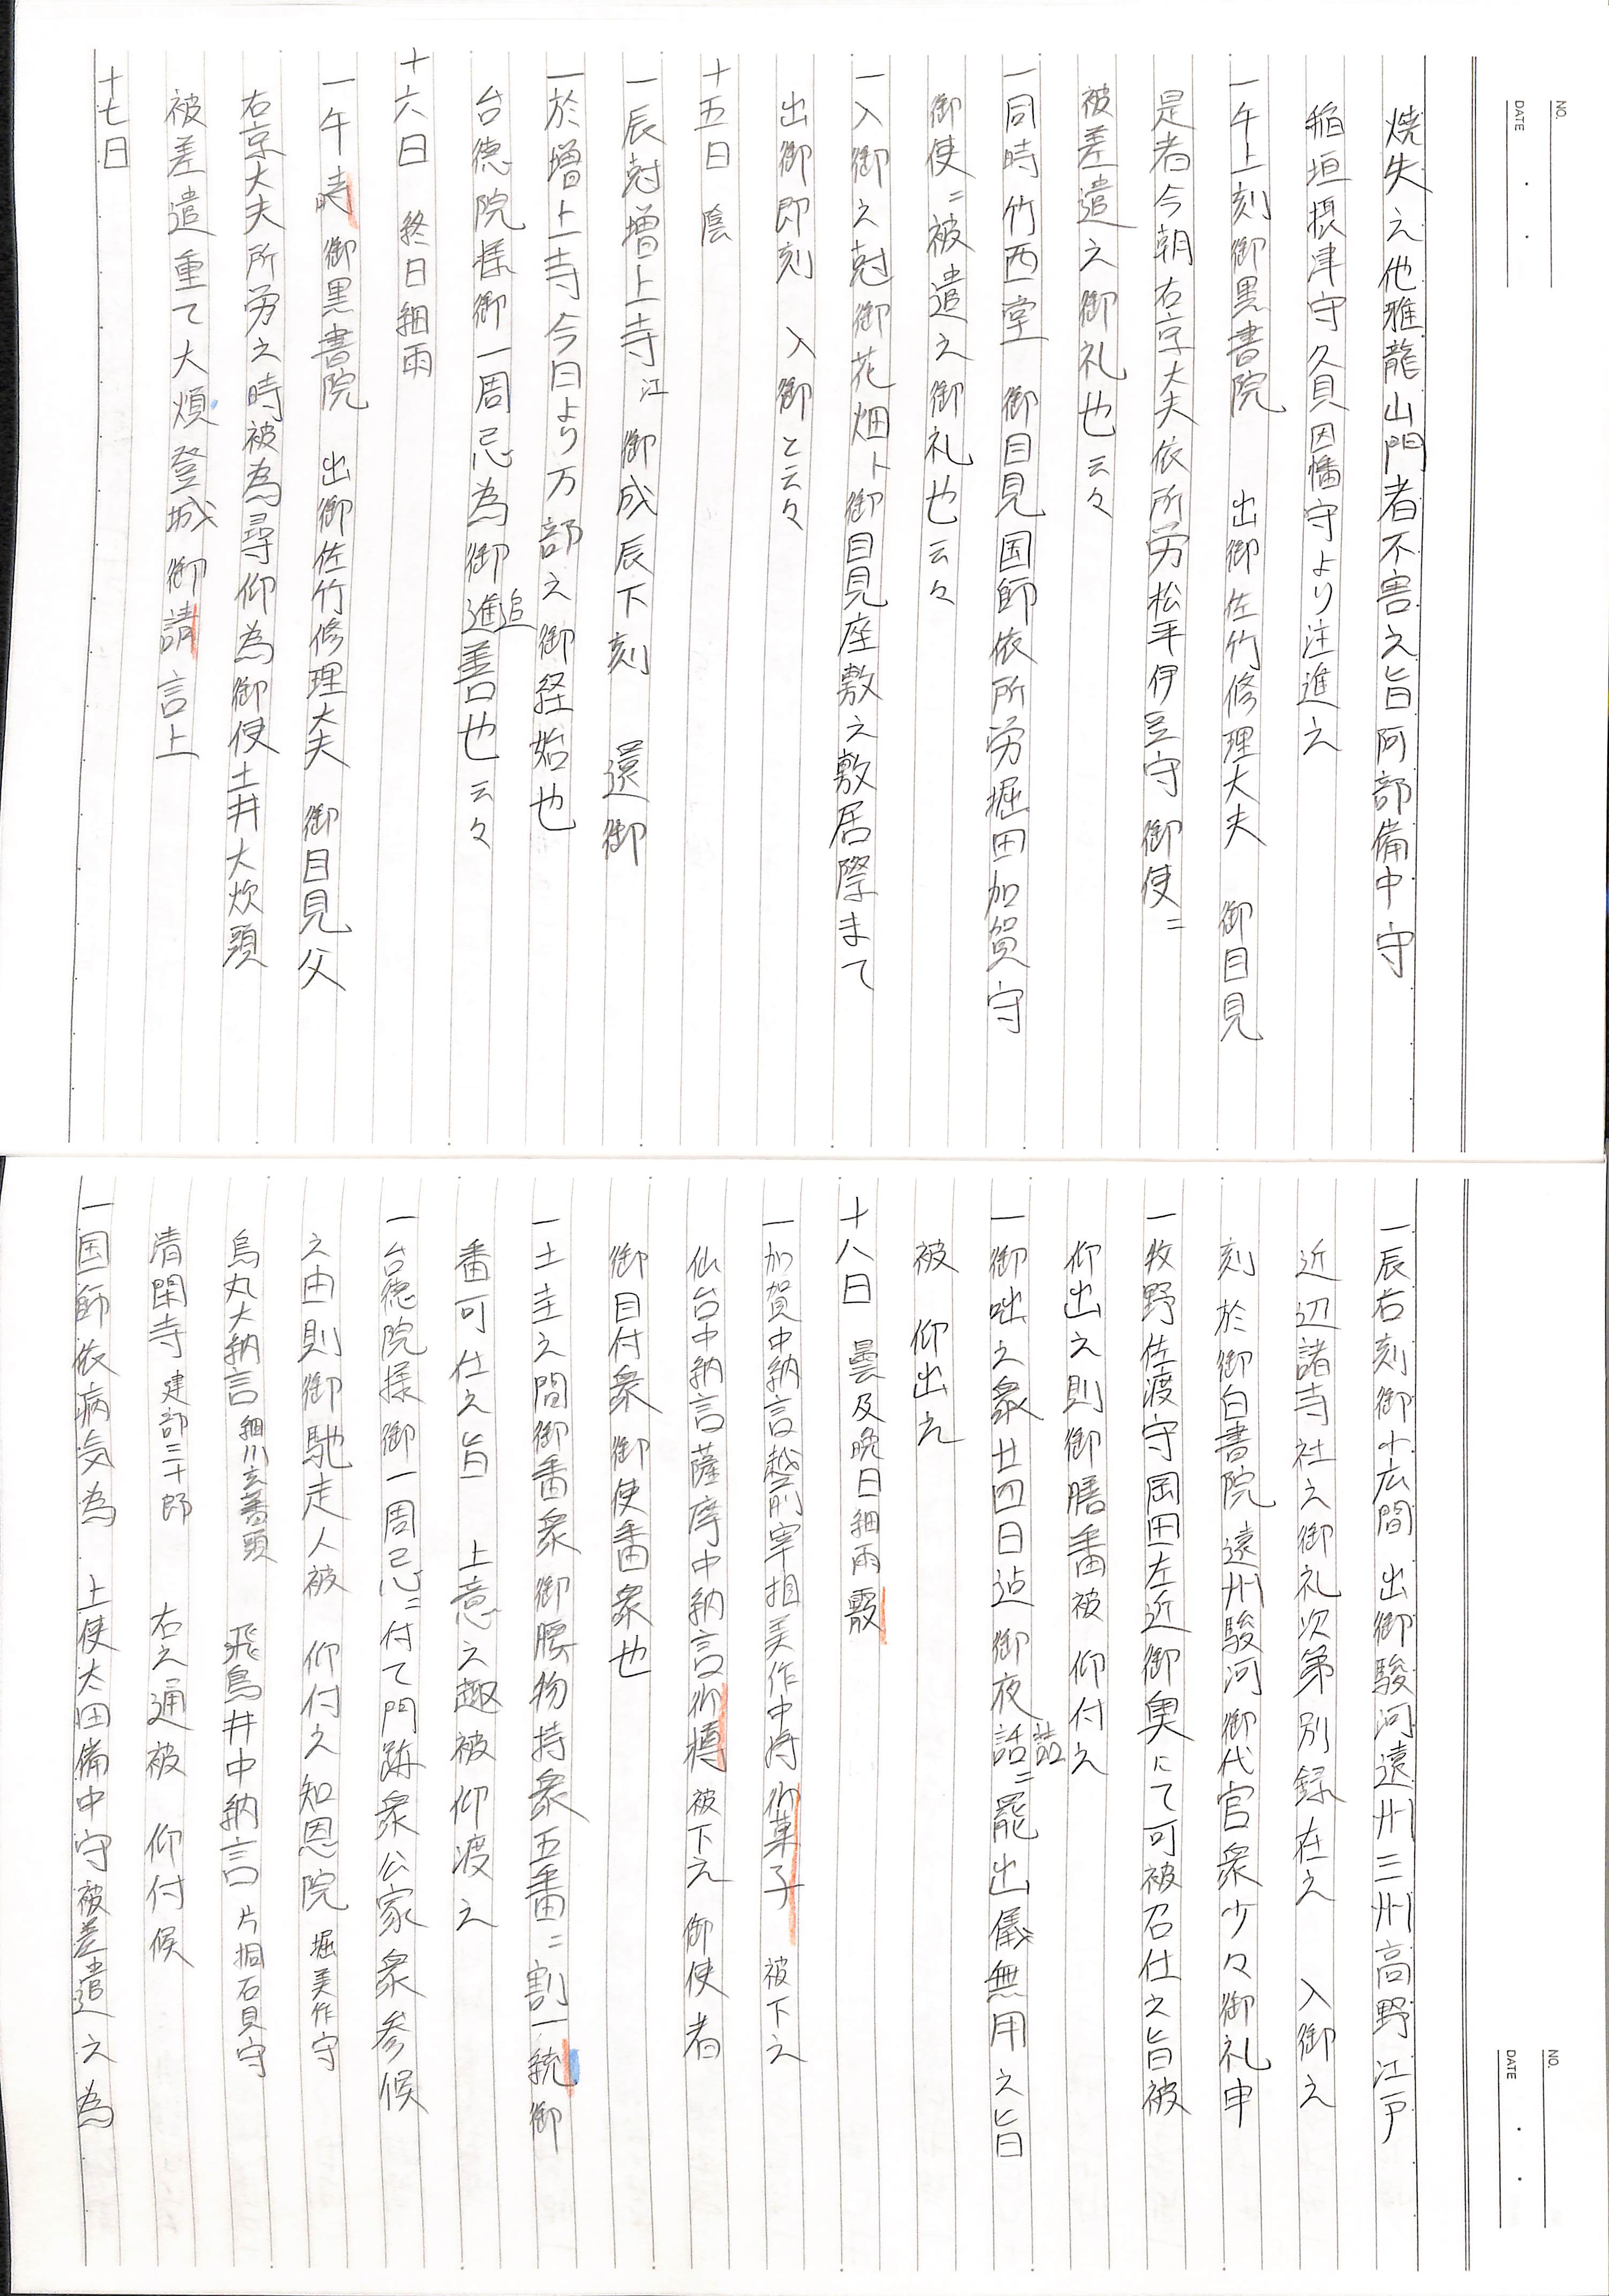 焼失之他雅龍山門者不害之旨阿部備中守
稲垣摂津守久貝因幡守より注進之
一午上刻御黒書院　出御佐竹修理大夫　御目見
是者今朝右京大夫依所労松平伊豆守　御使ニ
被差遣之御礼也云々
一同時竹西堂　御目見国師依所労堀田加賀守
御使ニ被遣之御礼也云々
一入御之尅御花畑ト御目見座敷之敷居際まて
出御即刻　入御と云々
十五日　陰
一辰尅増上寺江　御成辰下刻　還御
一於増上寺今日より万部之御経始也
台徳院様御一周忌為御進追善也云々
十六日　終日細雨
一午時　御黒書院　出御佐竹修理大夫　御目見父
右京大夫所労之時被為尋仰為御使土井大炊頭
被差遣重て大煩登城御請言上
十七日
NO.
DATE　・　・
一辰右刻御小広間　出御駿河遠州三州高野江戸
近辺諸寺社之御礼次第別録在之　入御之
刻於御白書院　遠州駿河御代官衆少々御礼申
一牧野佐渡守岡田左近御奥にて可被召仕之旨被
仰出之則御膳番被　仰付之
一御咄之衆廿四日迠御夜話詰ニ罷出儀無用之旨
被　仰出之
十八日　曇及晩日細雨霰
一加賀中納言越前宰相美作中将御菓子　被下之
仙台中納言薩摩中納言御樽被下之　御使者
御目付衆御使番衆也
一土圭之間御番衆御腰物持衆五番ニ割一統御
番可仕之旨　上意之趣被仰渡之
一台徳院様御一周忌ニ付て門跡衆公家衆参候
之由則御馳走人被　仰付之知恩院　堀美作守
烏丸大納言　細川玄蕃頭　飛鳥井中納言　片桐石見守
清閑寺　建部三十郎　右之通被　仰付候
一国師依病気為　上使太田備中守被差遣之為
NO.
DATE　・　・